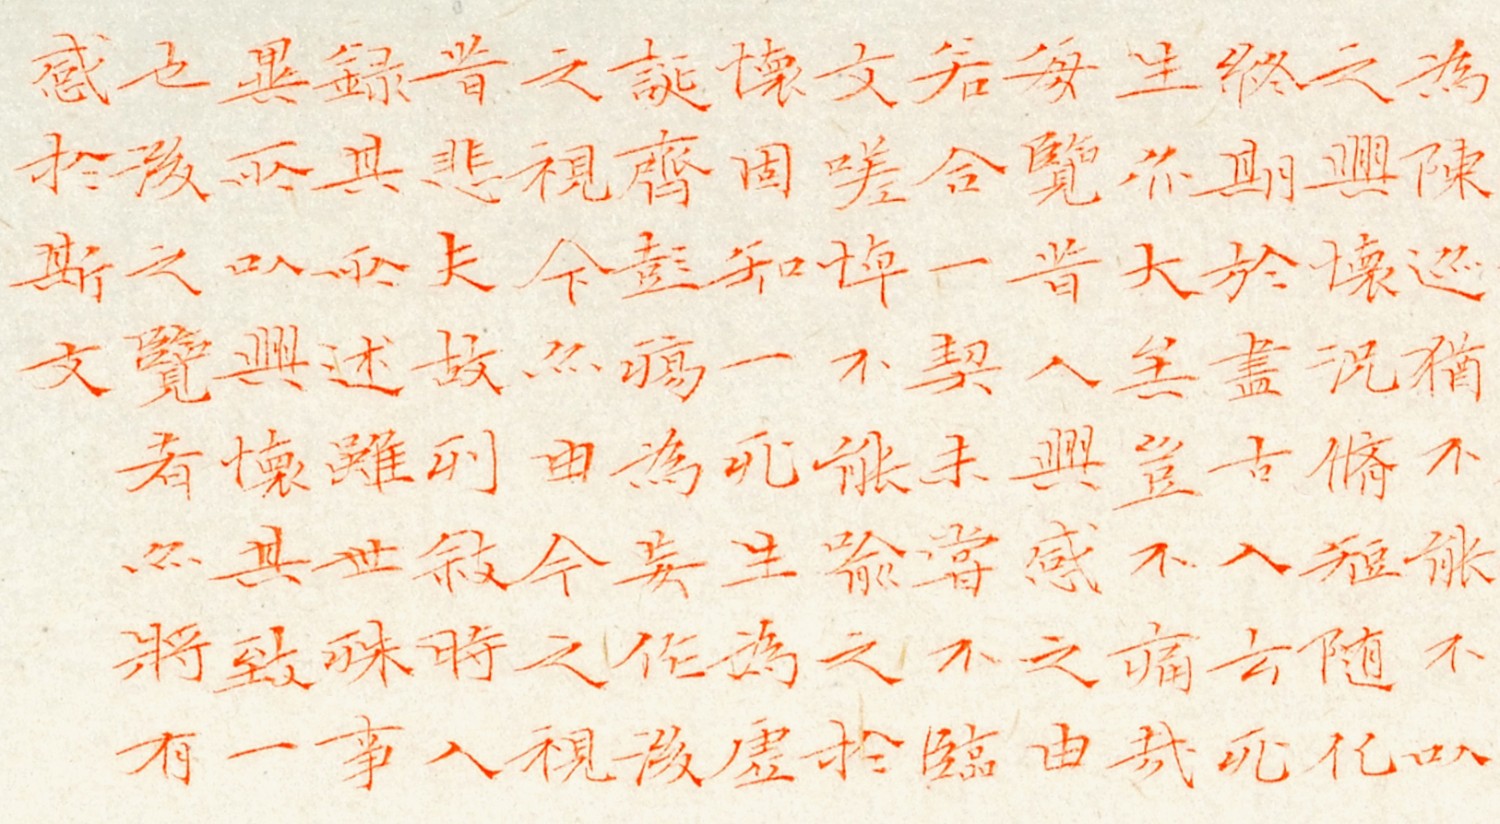 為陳迹猶不能不以
之興懷況脩短隨化
終期於盡古人云死
生亦大矣豈不痛哉
每覽昔人興感之由
若合一契未嘗不臨
文嗟悼不能喻之於
懷固知一死生為虛
誕齊彭殤為妄作後
之視今亦由今之視
昔悲夫故列敘時人
錄其所述雖世殊事
異所以興懷其致一
也後之覽者亦將有
感於斯文